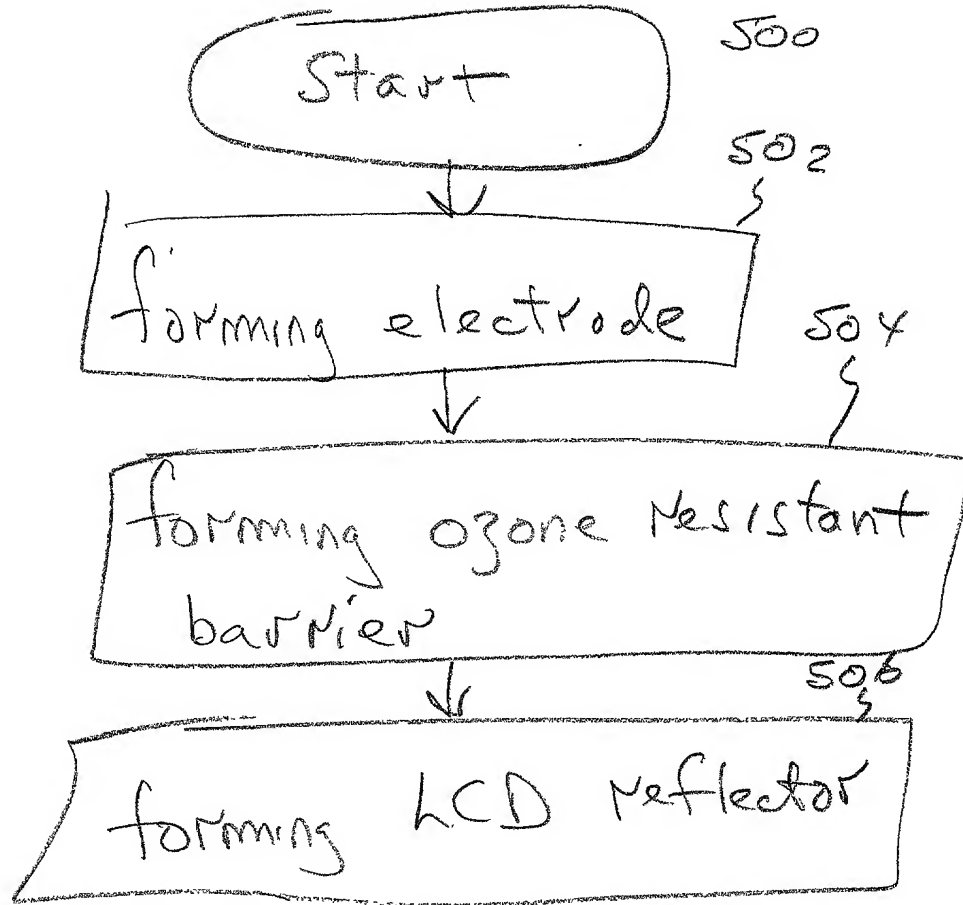 500
Start
502
forming electrode
504
forming ozone resistant
barrier
506
forming LCD reflector